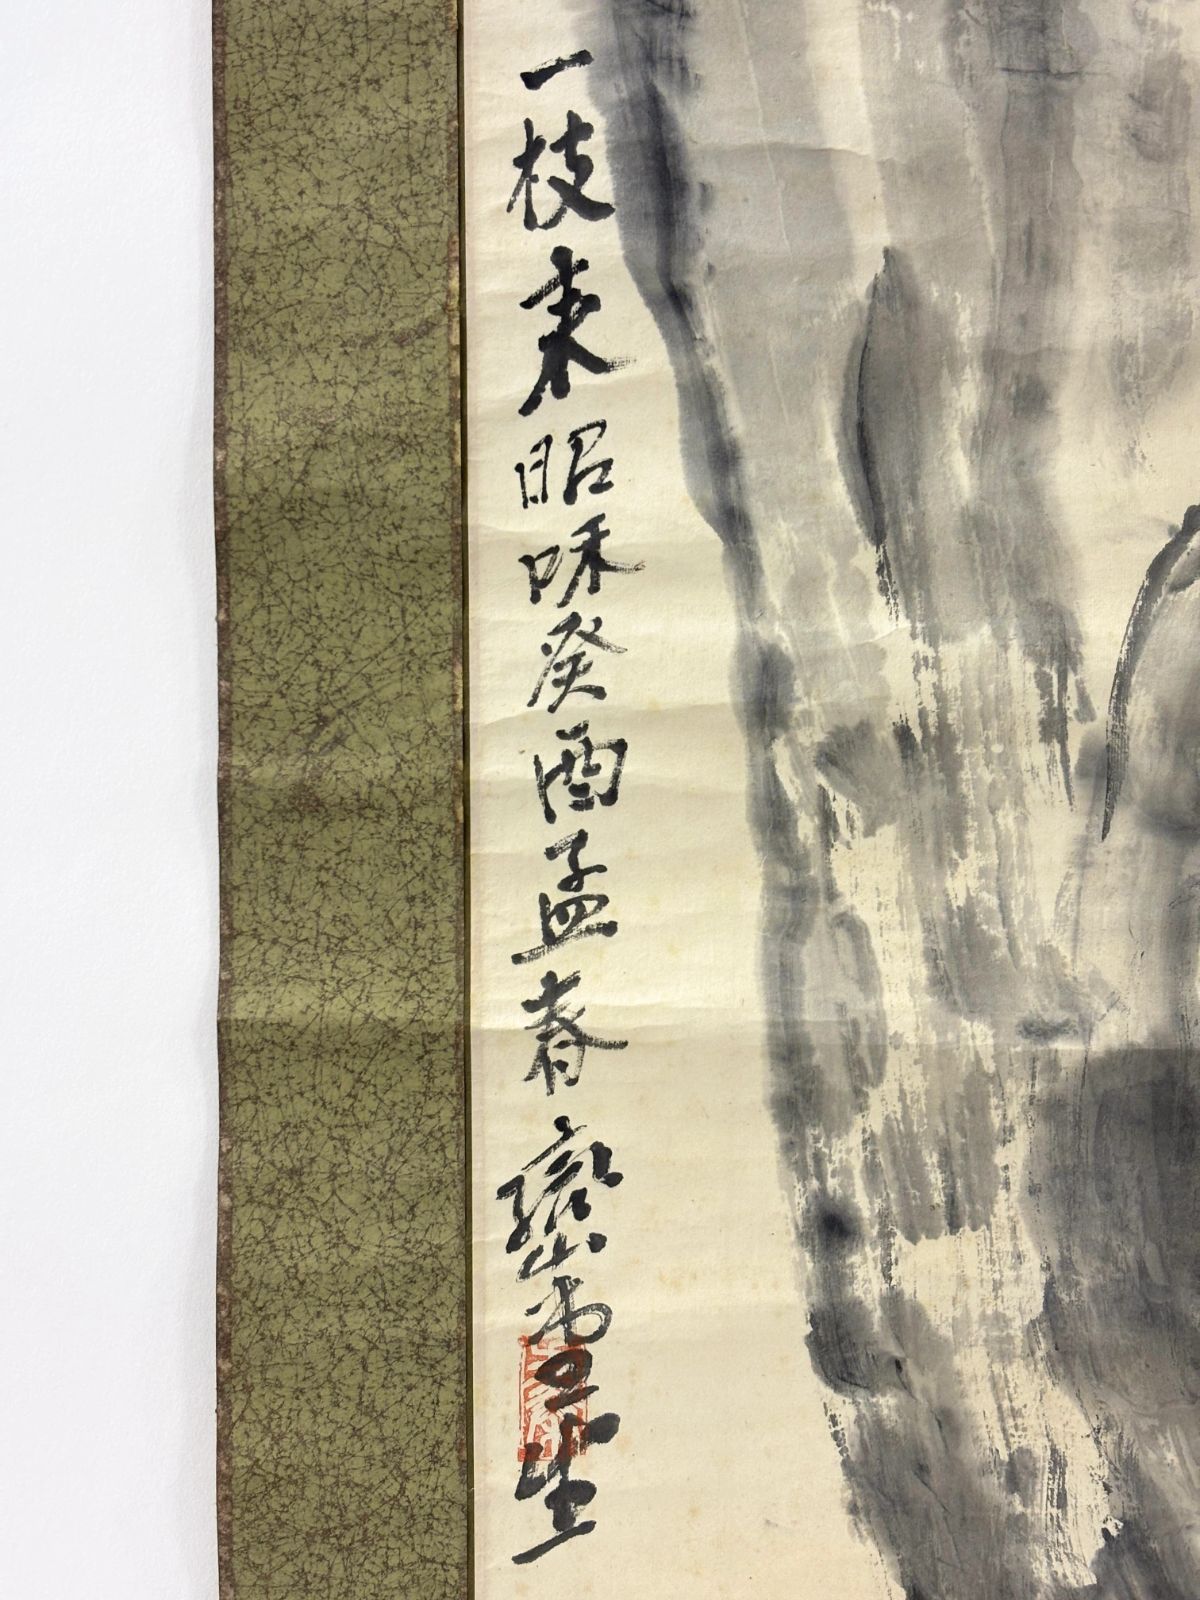 一枝来昭和癸酉孟春巒雪生